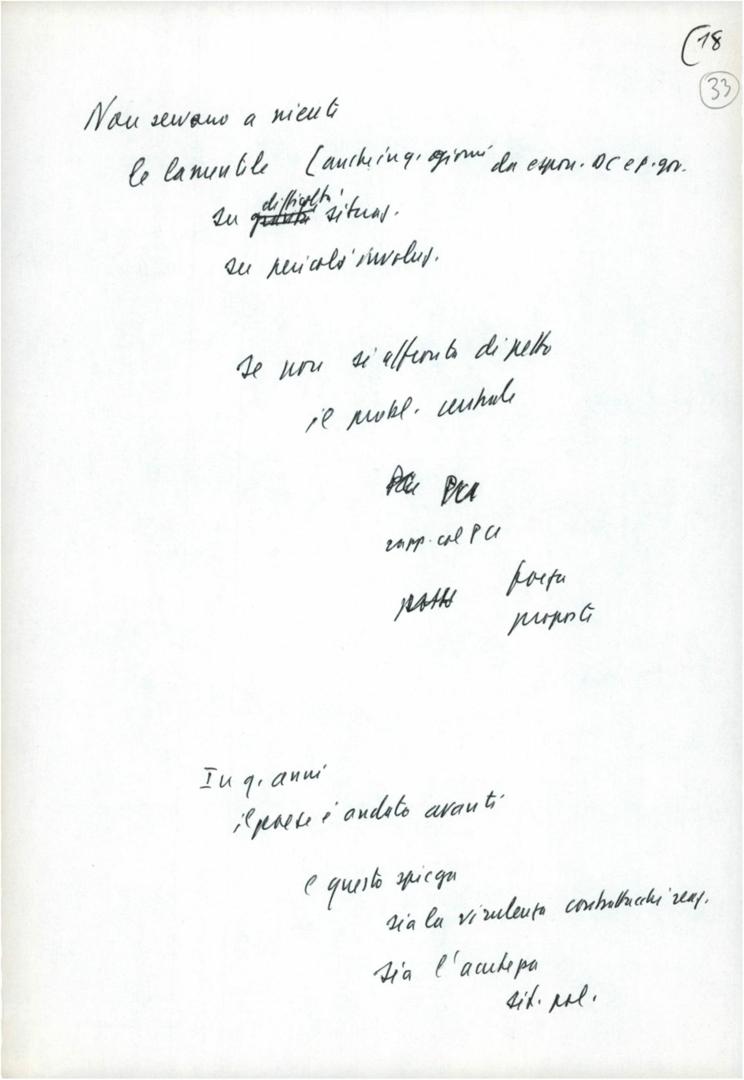 (18
33
Non servono a niente
le lamentele (anche in q. giorni da espon. DC e P. gov.
su difficoltà situaz.
su pericoli involuz.
se non si affronta di petto
il probl. centrale
PCI
rapp. col PCI
forza
proposte
In q. anni
il paese è andato avanti
e questo spiega
sia la virulenza contrattacchi reaz.
sia l'acutezza
sit. pol.